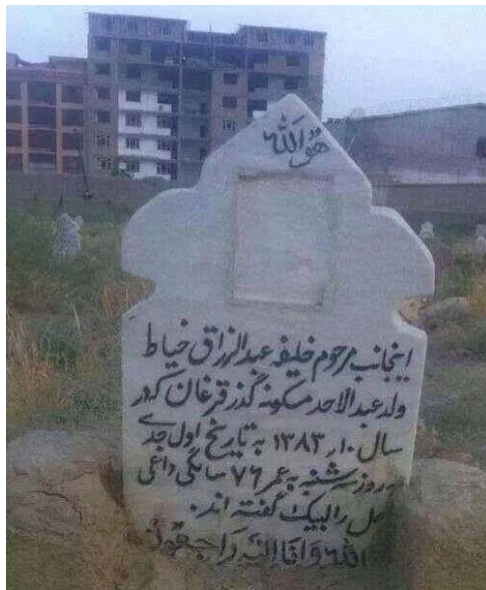 هُوَ اَللّٰه
اینجانب مرحوم خلیفه عبدالرزاق خیاط
ولد عبدالاحد مسکونه گذر قرغان که در
سال ۱۳۸۳٫۱۰ به تاریخ اول جدی
روز سه شنبه به عمر ۷۶ سالگی داعی
را لبیک گفته اند.
وَاِنّا اِلَیهِ رَاجِعُونَ